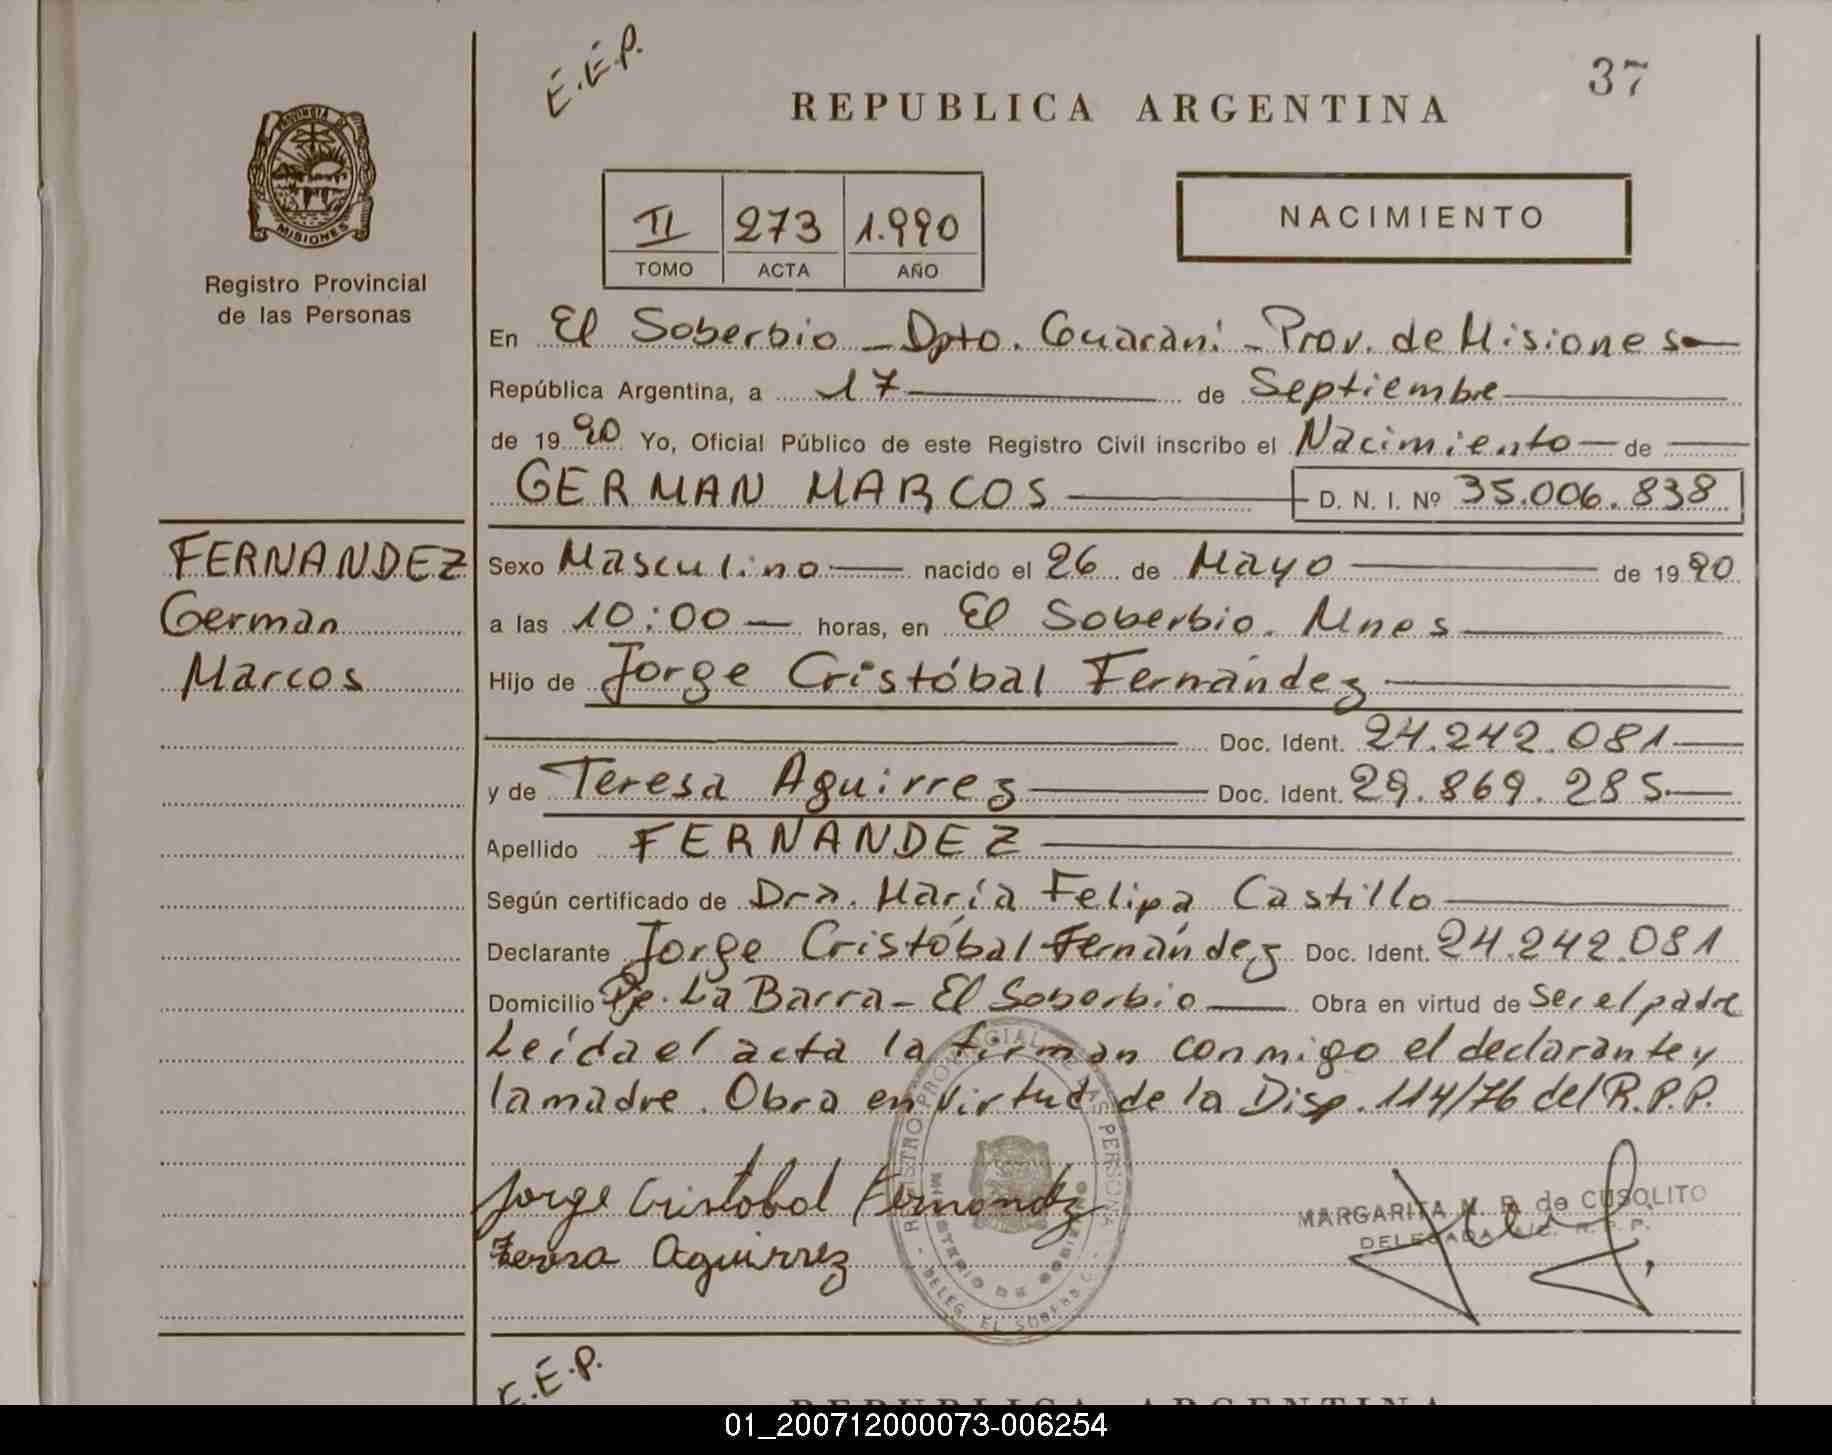 E.E.P.
37
REPUBLICA ARGENTINA
PROVINCIA DE
MISIONES
Registro Provincial
de las Personas
II 273 1.990
TOMO ACTA AÑO
NACIMIENTO
En El Soberbio - Dpto. Guaraní - Prov. de Misiones
República Argentina, a 17 de Septiembre
de 1990 Yo, Oficial Público de este Registro Civil inscribo el Nacimiento de
GERMAN MARCOS D. N. I. Nº 35.006.838
FERNANDEZ
German
Marcos
Sexo Masculino nacido el 26 de Mayo de 1990
a las 10:00 horas, en El Soberbio. Mnes
Hijo de Jorge Cristóbal Fernández
Doc. Ident. 24.242.081
y de Teresa Aguirrez Doc. Ident. 29.869.285
Apellido FERNANDEZ
Según certificado de Dra. María Felipa Castillo
Declarante Jorge Cristóbal Fernández Doc. Ident. 24.242.081
Domicilio Pje. La Barra - El Soberbio Obra en virtud de Ser el padre
Leída el acta la firman conmigo el declarante y
la madre. Obra en virtud de la Disp. 114/76 del R.P.P.
Jorge Cristobal Fernandez
Teresa Aguirrez
REGISTRO PROVINCIAL DE LAS PERSONAS
MINISTERIO DE GOBIERNO
DELEG. EL SOBERBIO
MARGARITA N. B. de CUSOLITO
DELEGADA R. P. P.
E.E.P.
REPUBLICA ARGENTINA
01_200712000073-006254